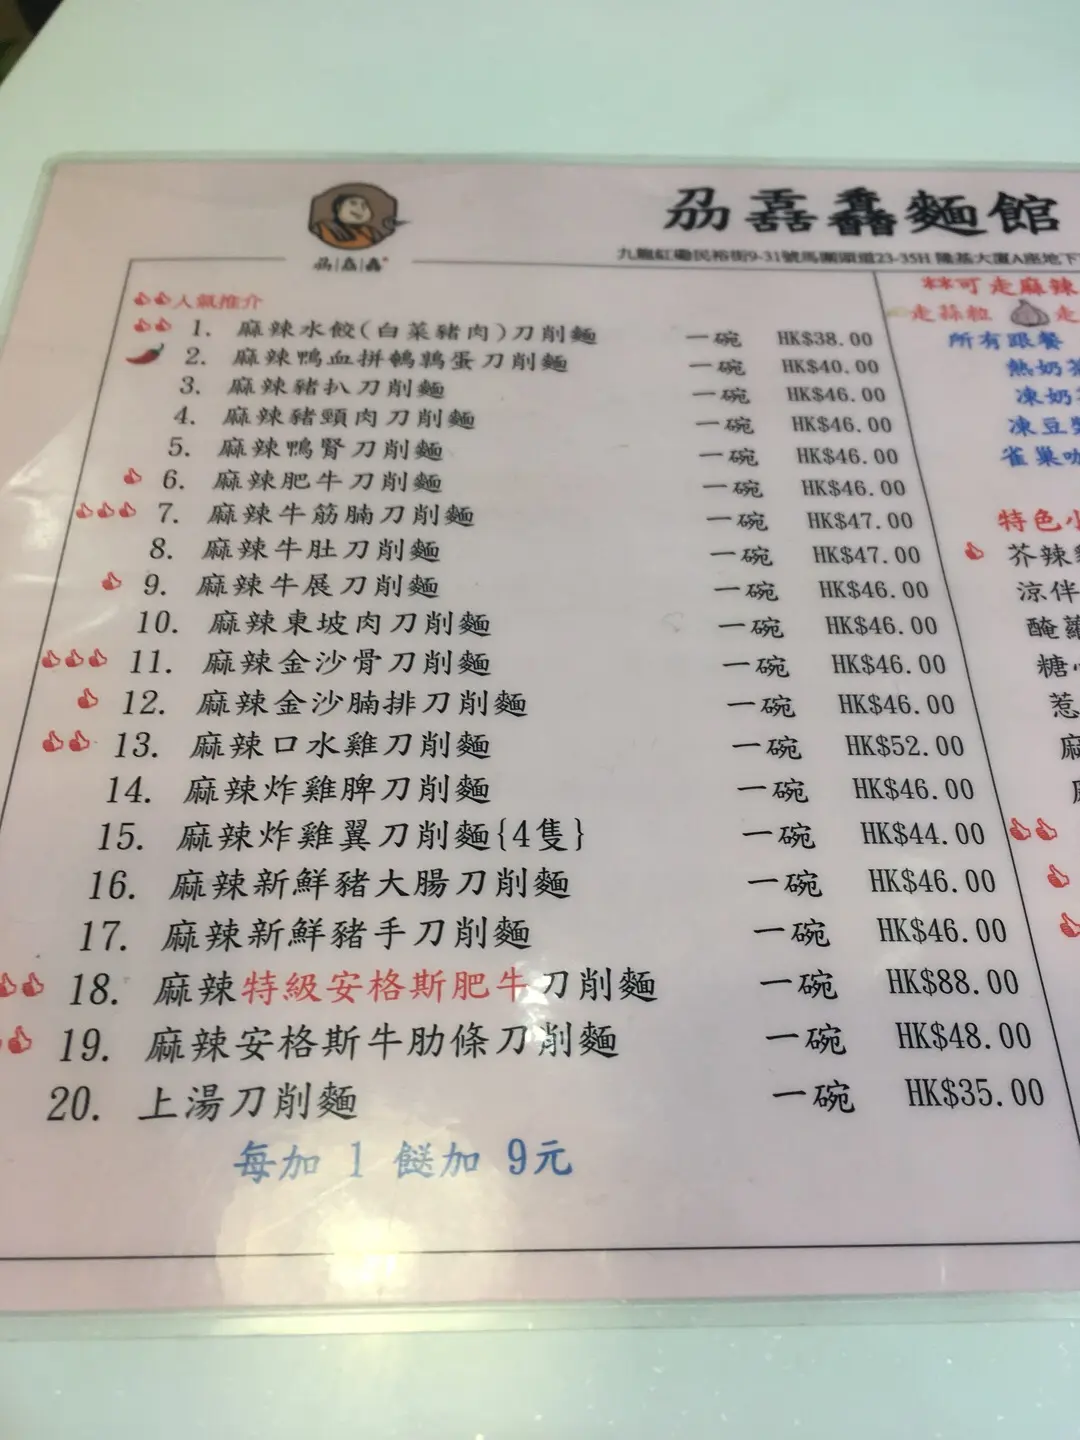 刕 𠾅 馫 麵館
九龍紅磡民裕街9-31號馬頭圍道23-35H 隆基大廈A座地下
人氣推介
1. 麻辣水餃(白菜豬肉)刀削麵 一碗 HK$38.00
2. 麻辣鴨血拼鵪鶉蛋刀削麵 一碗 HK$40.00
3. 麻辣豬扒刀削麵 一碗 HK$46.00
4. 麻辣豬頸肉刀削麵 一碗 HK$46.00
5. 麻辣鴨腎刀削麵 一碗 HK$46.00
6. 麻辣肥牛刀削麵 一碗 HK$46.00
7. 麻辣牛筋腩刀削麵 一碗 HK$47.00
8. 麻辣牛肚刀削麵 一碗 HK$47.00
9. 麻辣牛展刀削麵 一碗 HK$46.00
10. 麻辣東坡肉刀削麵 一碗 HK$46.00
11. 麻辣金沙骨刀削麵 一碗 HK$46.00
12. 麻辣金沙腩排刀削麵 一碗 HK$46.00
13. 麻辣口水雞刀削麵 一碗 HK$52.00
14. 麻辣炸雞脾刀削麵 一碗 HK$46.00
15. 麻辣炸雞翼刀削麵{4隻} 一碗 HK$44.00
16. 麻辣新鮮豬大腸刀削麵 一碗 HK$46.00
17. 麻辣新鮮豬手刀削麵 一碗 HK$46.00
18. 麻辣特級安格斯肥牛刀削麵 一碗 HK$88.00
19. 麻辣安格斯牛肋條刀削麵 一碗 HK$48.00
20. 上湯刀削麵 一碗 HK$35.00
每加 1 餸加 9元
**可走麻辣
走蒜粒 走
所有跟餐
熱奶茶
凍奶
凍豆漿
雀巢咖
特色小
芥辣
涼伴
醃蘿
糖心
惹
麻